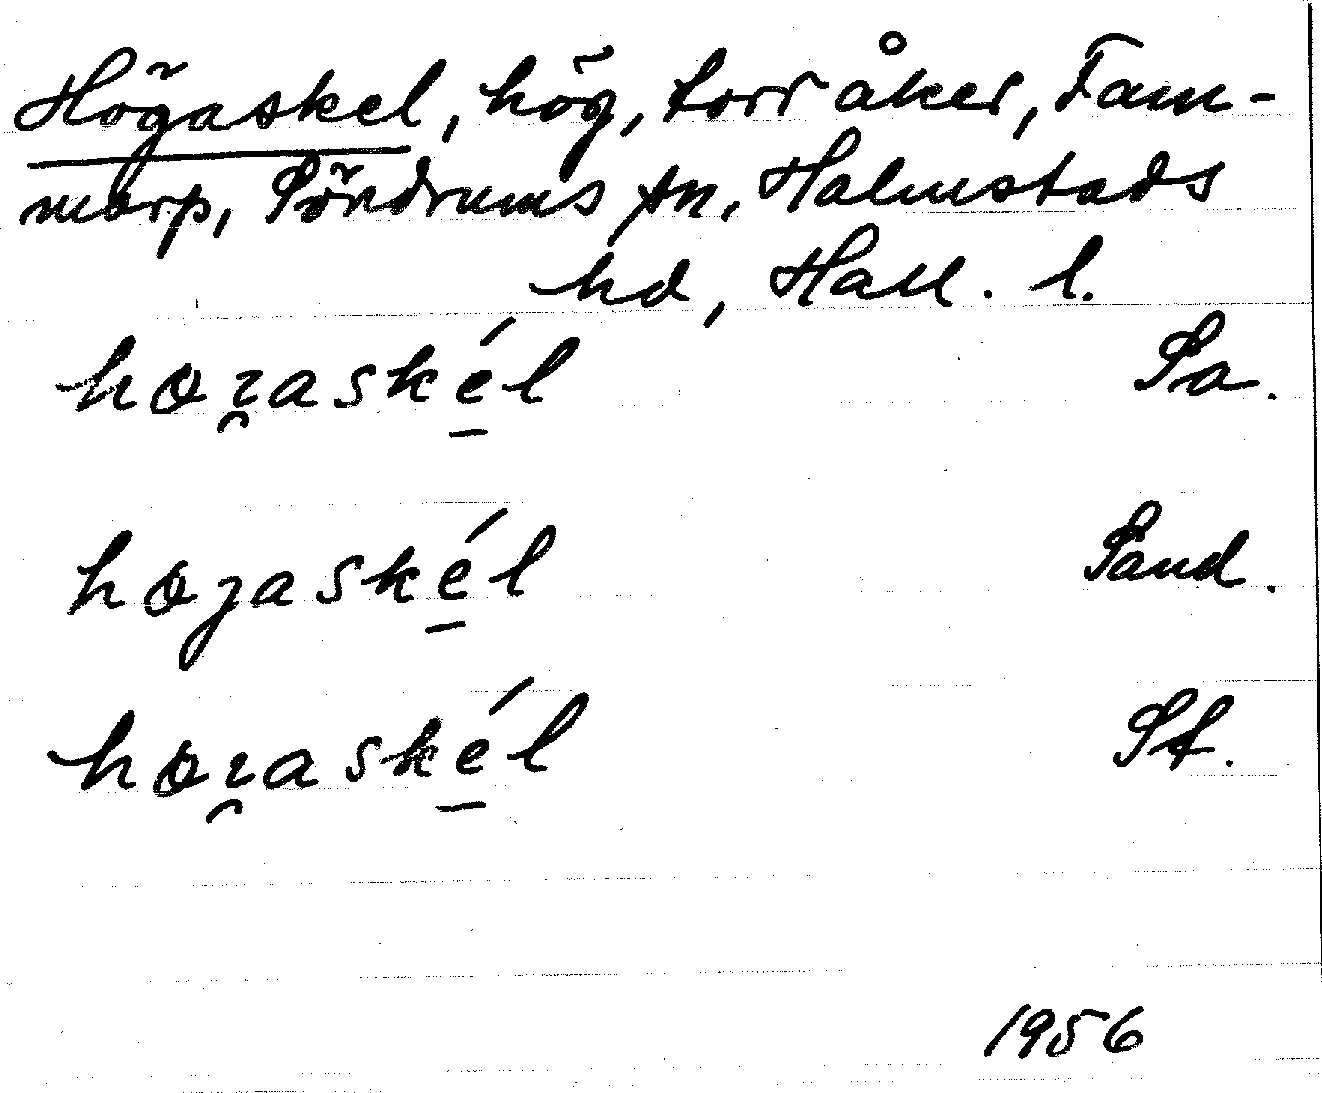 Högaskel, hög, torr åker, Fam-
marp, Söndrums sn, Halmstads
hd, Hall. l.
høɀ̯aské̠l Sa.
høʒaské̠l Sand.
høɀ̯aské̠l Sf.
1956